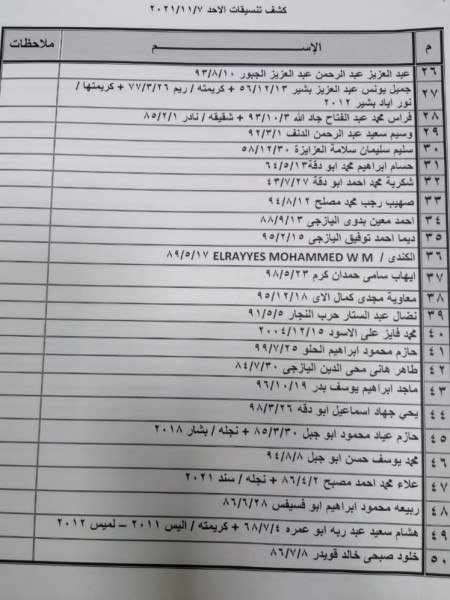 كشف تنسيقات الاحد ٢٠٢١/١١/٧
م الإســـــم ملاحظات
٢٦ عبد العزيز عبد الرحمن عبد العزيز الجبور ٩٣/٨/١٠
٢٧ جميل يونس عبد العزيز بشير ٥٦/١٢/١٣ + كريمته / ريم ٧٧/٣/٢٦ + كريمتها /
نور اياد بشير ٢٠١٢
٢٨ فراس محمد عبد الفتاح جاد الله ٩٣/١٠/٣ + شقيقه / نادر ٨٥/٢/١
٢٩ وسيم سعيد عبد الرحمن الدنف ٩٢/٣/١
٣٠ سليم سليمان سلامة العزايزة ٥٨/١٢/٣٠
٣١ حسام ابراهيم محمد ابو دقة ٦٤/٥/١٣
٣٢ شكرية محمد احمد ابو دقة ٤٣/٧/٢٧
٣٣ صهيب رجب محمد مصلح ٩٤/٨/١٢
٣٤ احمد معين بدوى اليازجي ٨٨/٩/١٣
٣٥ ديما احمد توفيق اليازجي ٩٥/٢/١٥
٣٦ الكندى / ELRAYYES MOHAMMED W M ٨٩/٥/١٧
٣٧ ايهاب سامى حمدان كرم ٩٨/٥/٢٣
٣٨ معاوية مجدى كمال الاى ٩٥/١٢/١٨
٣٩ نضال عبد الستار حرب النجار ٩١/٥/٥
٤٠ محمد فايز على الاسود ٢٠٠٤/١٢/١٥
٤١ حازم محمود ابراهيم الحلو ٩٩/٧/٢٥
٤٢ طاهر هانى محى الدين اليازجي ٨٤/٧/٣٠
٤٣ ماجد ابراهيم يوسف بدر ٩٦/١٠/١٩
٤٤ يحي جهاد اسماعيل ابو دقه ٩٨/٣/٢٦
٤٥ حازم عياد محمود ابو جبل ٨٥/٣/٣٠ + نجله / بشار ٢٠١٨
٤٦ محمد يوسف حسن ابو جبل ٩٤/٨/٨
٤٧ علاء محمد احمد مصبح ٨٦/٤/٢ + نجله / سند ٢٠٢١
٤٨ ربيعه محمود ابراهيم ابو فسيفس ٨٦/٦/٢٨
٤٩ هشام سعيد عبد ربه ابو عمره ٦٨/٧/٤ + كريمته / اليس ٢٠١١ – لميس ٢٠١٢
٥٠ خلود صبحى خالد قويدر ٨٦/٧/٨